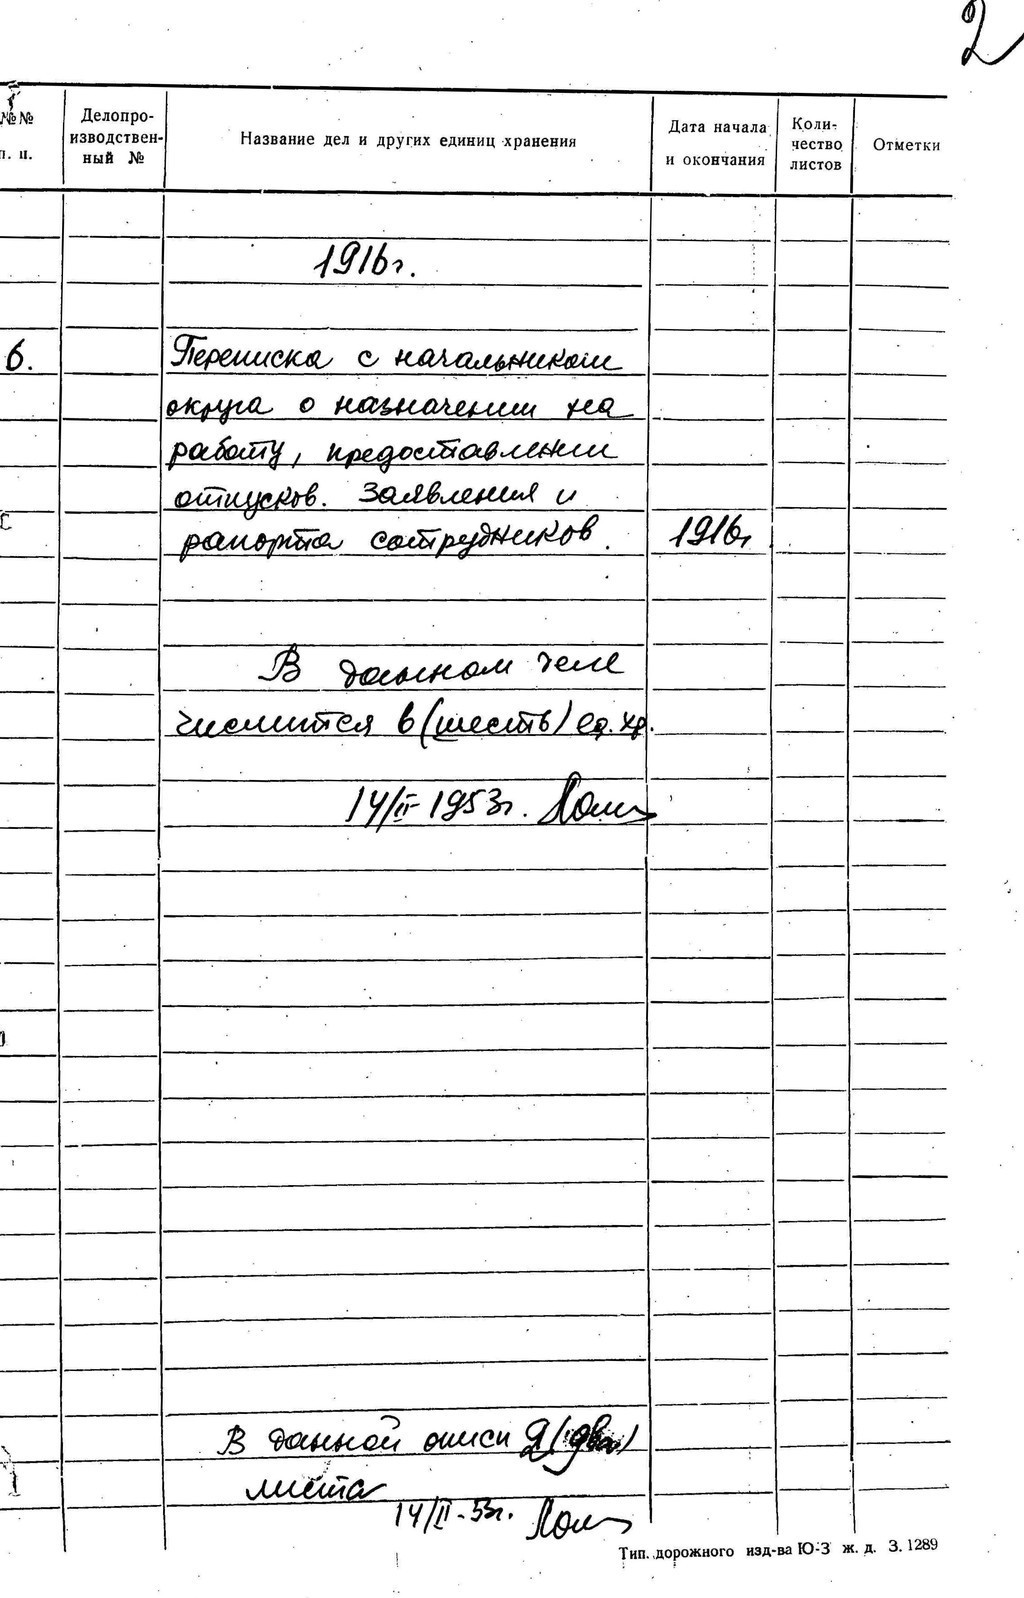 2
№№ п. п.
Делопро-
изводствен-
ный №
Название дел и других единиц хранения
Дата начала
и окончания
Коли-
чество
листов
Отметки
1916г.
6. Переписка с начальником
округа о назначении на
работу, предоставлении
отпусков. Заявления и
рапорта сотрудников. 1916г
В данном деле
числится 6 (шесть) ед. хр.
14/II-1953г.
В данной описи 2 (два)
листа
14/II-53г.
Тип. дорожного изд-ва Ю-З ж. д. З. 1289